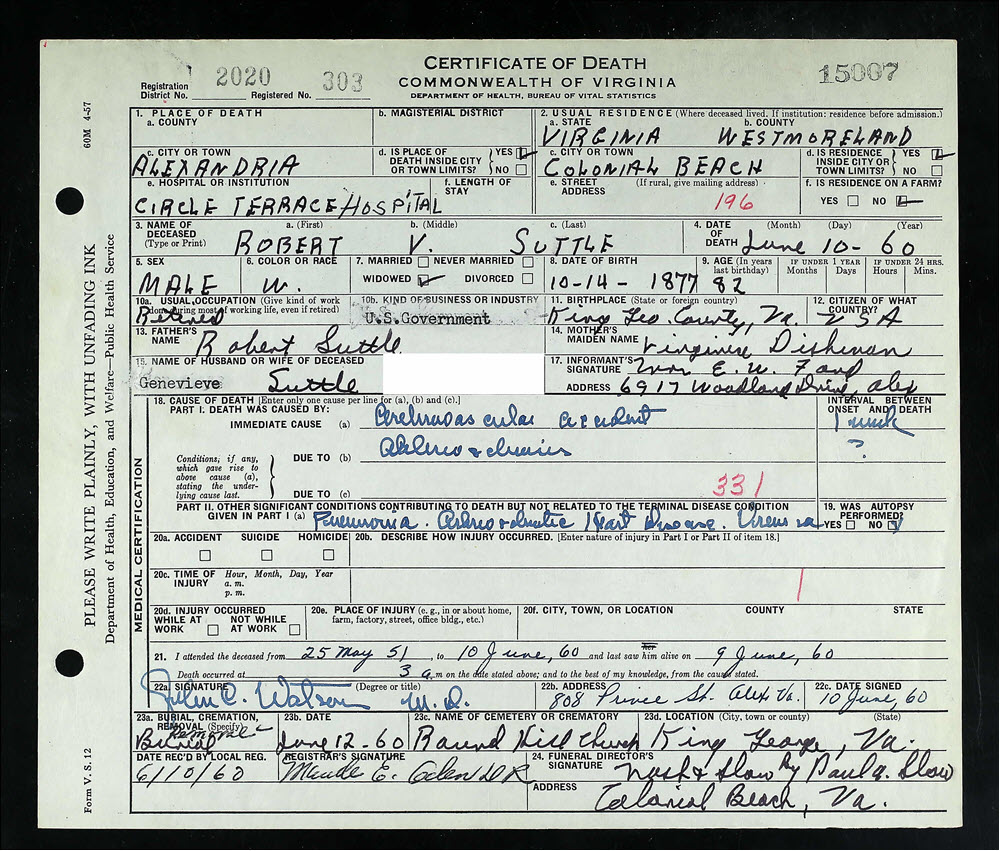 CERTIFICATE OF DEATH
COMMONWEALTH OF VIRGINIA
DEPARTMENT OF HEALTH, BUREAU OF VITAL STATISTICS
Registration District No. 2020 Registered No. 303
15007
60M 4-57
PLEASE WRITE PLAINLY, WITH UNFADING INK
Department of Health, Education, and Welfare—Public Health Service
Form V. S. 12
1. PLACE OF DEATH
a. COUNTY
b. MAGISTERIAL DISTRICT
2. USUAL RESIDENCE (Where deceased lived. If institution: residence before admission.)
a. STATE VIRGINIA
b. COUNTY WESTMORELAND
c. CITY OR TOWN ALEXANDRIA
d. IS PLACE OF DEATH INSIDE CITY OR TOWN LIMITS? YES NO
c. CITY OR TOWN COLONIAL BEACH
d. IS RESIDENCE INSIDE CITY OR TOWN LIMITS? YES NO
e. HOSPITAL OR INSTITUTION CIRCLE TERRACE HOSPITAL
f. LENGTH OF STAY
e. STREET ADDRESS (If rural, give mailing address) 196
f. IS RESIDENCE ON A FARM? YES NO
3. NAME OF DECEASED (Type or Print)
a. (First) ROBERT
b. (Middle) V.
c. (Last) SUTTLE
4. DATE OF DEATH (Month) (Day) (Year) June 10-60
5. SEX MALE
6. COLOR OR RACE W.
7. MARRIED NEVER MARRIED WIDOWED DIVORCED
8. DATE OF BIRTH 10-14-1877
9. AGE (In years last birthday) 82
IF UNDER 1 YEAR Months Days
IF UNDER 24 HRS. Hours Mins.
10a. USUAL OCCUPATION (Give kind of work done during most of working life, even if retired) Retired
10b. KIND OF BUSINESS OR INDUSTRY U.S.Government
11. BIRTHPLACE (State or foreign country) King Geo. County, Va.
12. CITIZEN OF WHAT COUNTRY? USA
13. FATHER'S NAME Robert Suttle
14. MOTHER'S MAIDEN NAME Virginia
15. NAME OF HUSBAND OR WIFE OF DECEASED Genevieve Suttle
17. INFORMANT'S SIGNATURE Mrs E. W.
ADDRESS 6917 Woodland Drive, Alex
18. CAUSE OF DEATH [Enter only one cause per line for (a), (b) and (c).]
PART I. DEATH WAS CAUSED BY:
IMMEDIATE CAUSE (a) Cerebrovascular accident
INTERVAL BETWEEN ONSET AND DEATH 1 week
Conditions, if any, which gave rise to above cause (a), stating the underlying cause last.
DUE TO (b) ?
DUE TO (c) 331
PART II. OTHER SIGNIFICANT CONDITIONS CONTRIBUTING TO DEATH BUT NOT RELATED TO THE TERMINAL DISEASE CONDITION GIVEN IN PART I (a) Pneumonia. Heart Disease. Uremia
19. WAS AUTOPSY PERFORMED? YES NO
MEDICAL CERTIFICATION
20a. ACCIDENT SUICIDE HOMICIDE
20b. DESCRIBE HOW INJURY OCCURRED. [Enter nature of injury in Part I or Part II of item 18.]
20c. TIME OF INJURY Hour, Month, Day, Year a. m. p. m.
20d. INJURY OCCURRED WHILE AT WORK NOT WHILE AT WORK
20e. PLACE OF INJURY (e. g., in or about home, farm, factory, street, office bldg., etc.)
20f. CITY, TOWN, OR LOCATION COUNTY STATE
21. I attended the deceased from 25 May 51, to 10 June, 60 and last saw her him alive on 9 June, 60
Death occurred at 3 a. m on the date stated above; and to the best of my knowledge, from the causes stated.
22a. SIGNATURE (Degree or title) C. Watson M. D.
22b. ADDRESS 808 Prince St. Alex Va.
22c. DATE SIGNED 10 June, 60
23a. BURIAL, CREMATION, REMOVAL (Specify) Removal - Burial
23b. DATE June 12-60
23c. NAME OF CEMETERY OR CREMATORY Round Hill Church
23d. LOCATION (City, town or county) (State) King George, Va.
DATE REC'D BY LOCAL REG. 6/10/60
REGISTRAR'S SIGNATURE Maude E.
24. FUNERAL DIRECTOR'S SIGNATURE Nash & Slaw By Paul A. Slaw
ADDRESS Colonial Beach, Va.